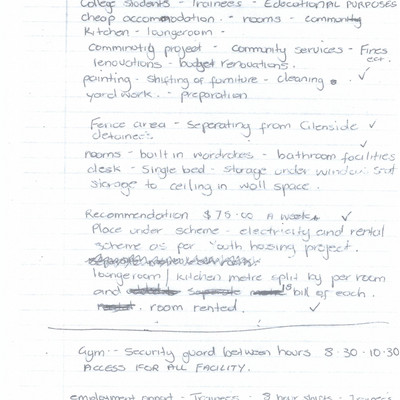 College students - Trainees - Educational purposes
cheap accommodation. - rooms - community
kitchen - loungeroom -
comminutiy project - community services - Fines
renovations - budget renovations. ect.
painting - shifting of furniture - cleaning. ✓
yard work. - preparation
Fence area - seperating from Glenside ✓
detainees
rooms - built in wardrobes - bathroom facilities
desk - single bed - storage under window seat
storage to ceiling in wall space.
Recommendation $75.00 a week. ✓
Place under scheme - electricity and rental
scheme as per youth hosing project.
loungeroom / kitchen metre split by per room
and is bill of each.
room rented. ✓
Gym - Security guard between hours 8.30 - 10.30
ACCESS FOR ALL FACILITY.
employment - Trainees - 8 hour shifts - Trainees